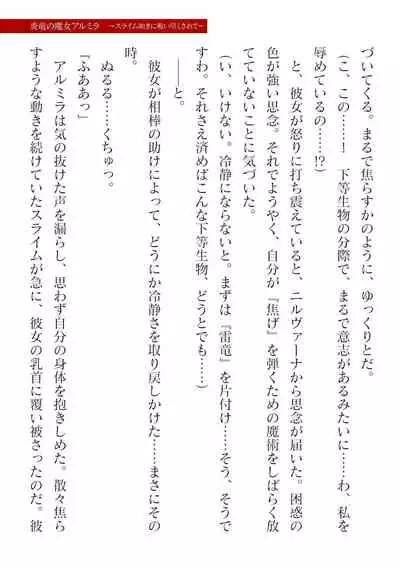 炎竜の魔女アルミラ　～スライム地獄に喰い尽くされて～
づいてくる。まるで焦らすかのように、ゆっくりとだ。
（こ、この……！　下等生物の分際で、まるで意志があるみたいに……わ、私を
辱めているの……!?）
　と、彼女が怒りに打ち震えていると、ニルヴァーナから思念が届いた。困惑の
色が強い思念。それでようやく、自分が『焦げ』を弾くための魔術をしばらく放
てていないことに気づいた。
（い、いけない。冷静にならないと。まずは『雷竜』を片付け……そう、そうで
すわ。それさえ済めばこんな下等生物、どうとでも……）
　――と。
　彼女が相棒の助けによって、どうにか冷静さを取り戻しかけた……まさにその
時。
　ぬるる……くちゅっ。
「ふああっ」
　アルミラは気の抜けた声を漏らし、思わず自分の身体を抱きしめた。散々焦ら
すような動きを続けていたスライムが急に、彼女の乳首に覆い被さったのだ。彼